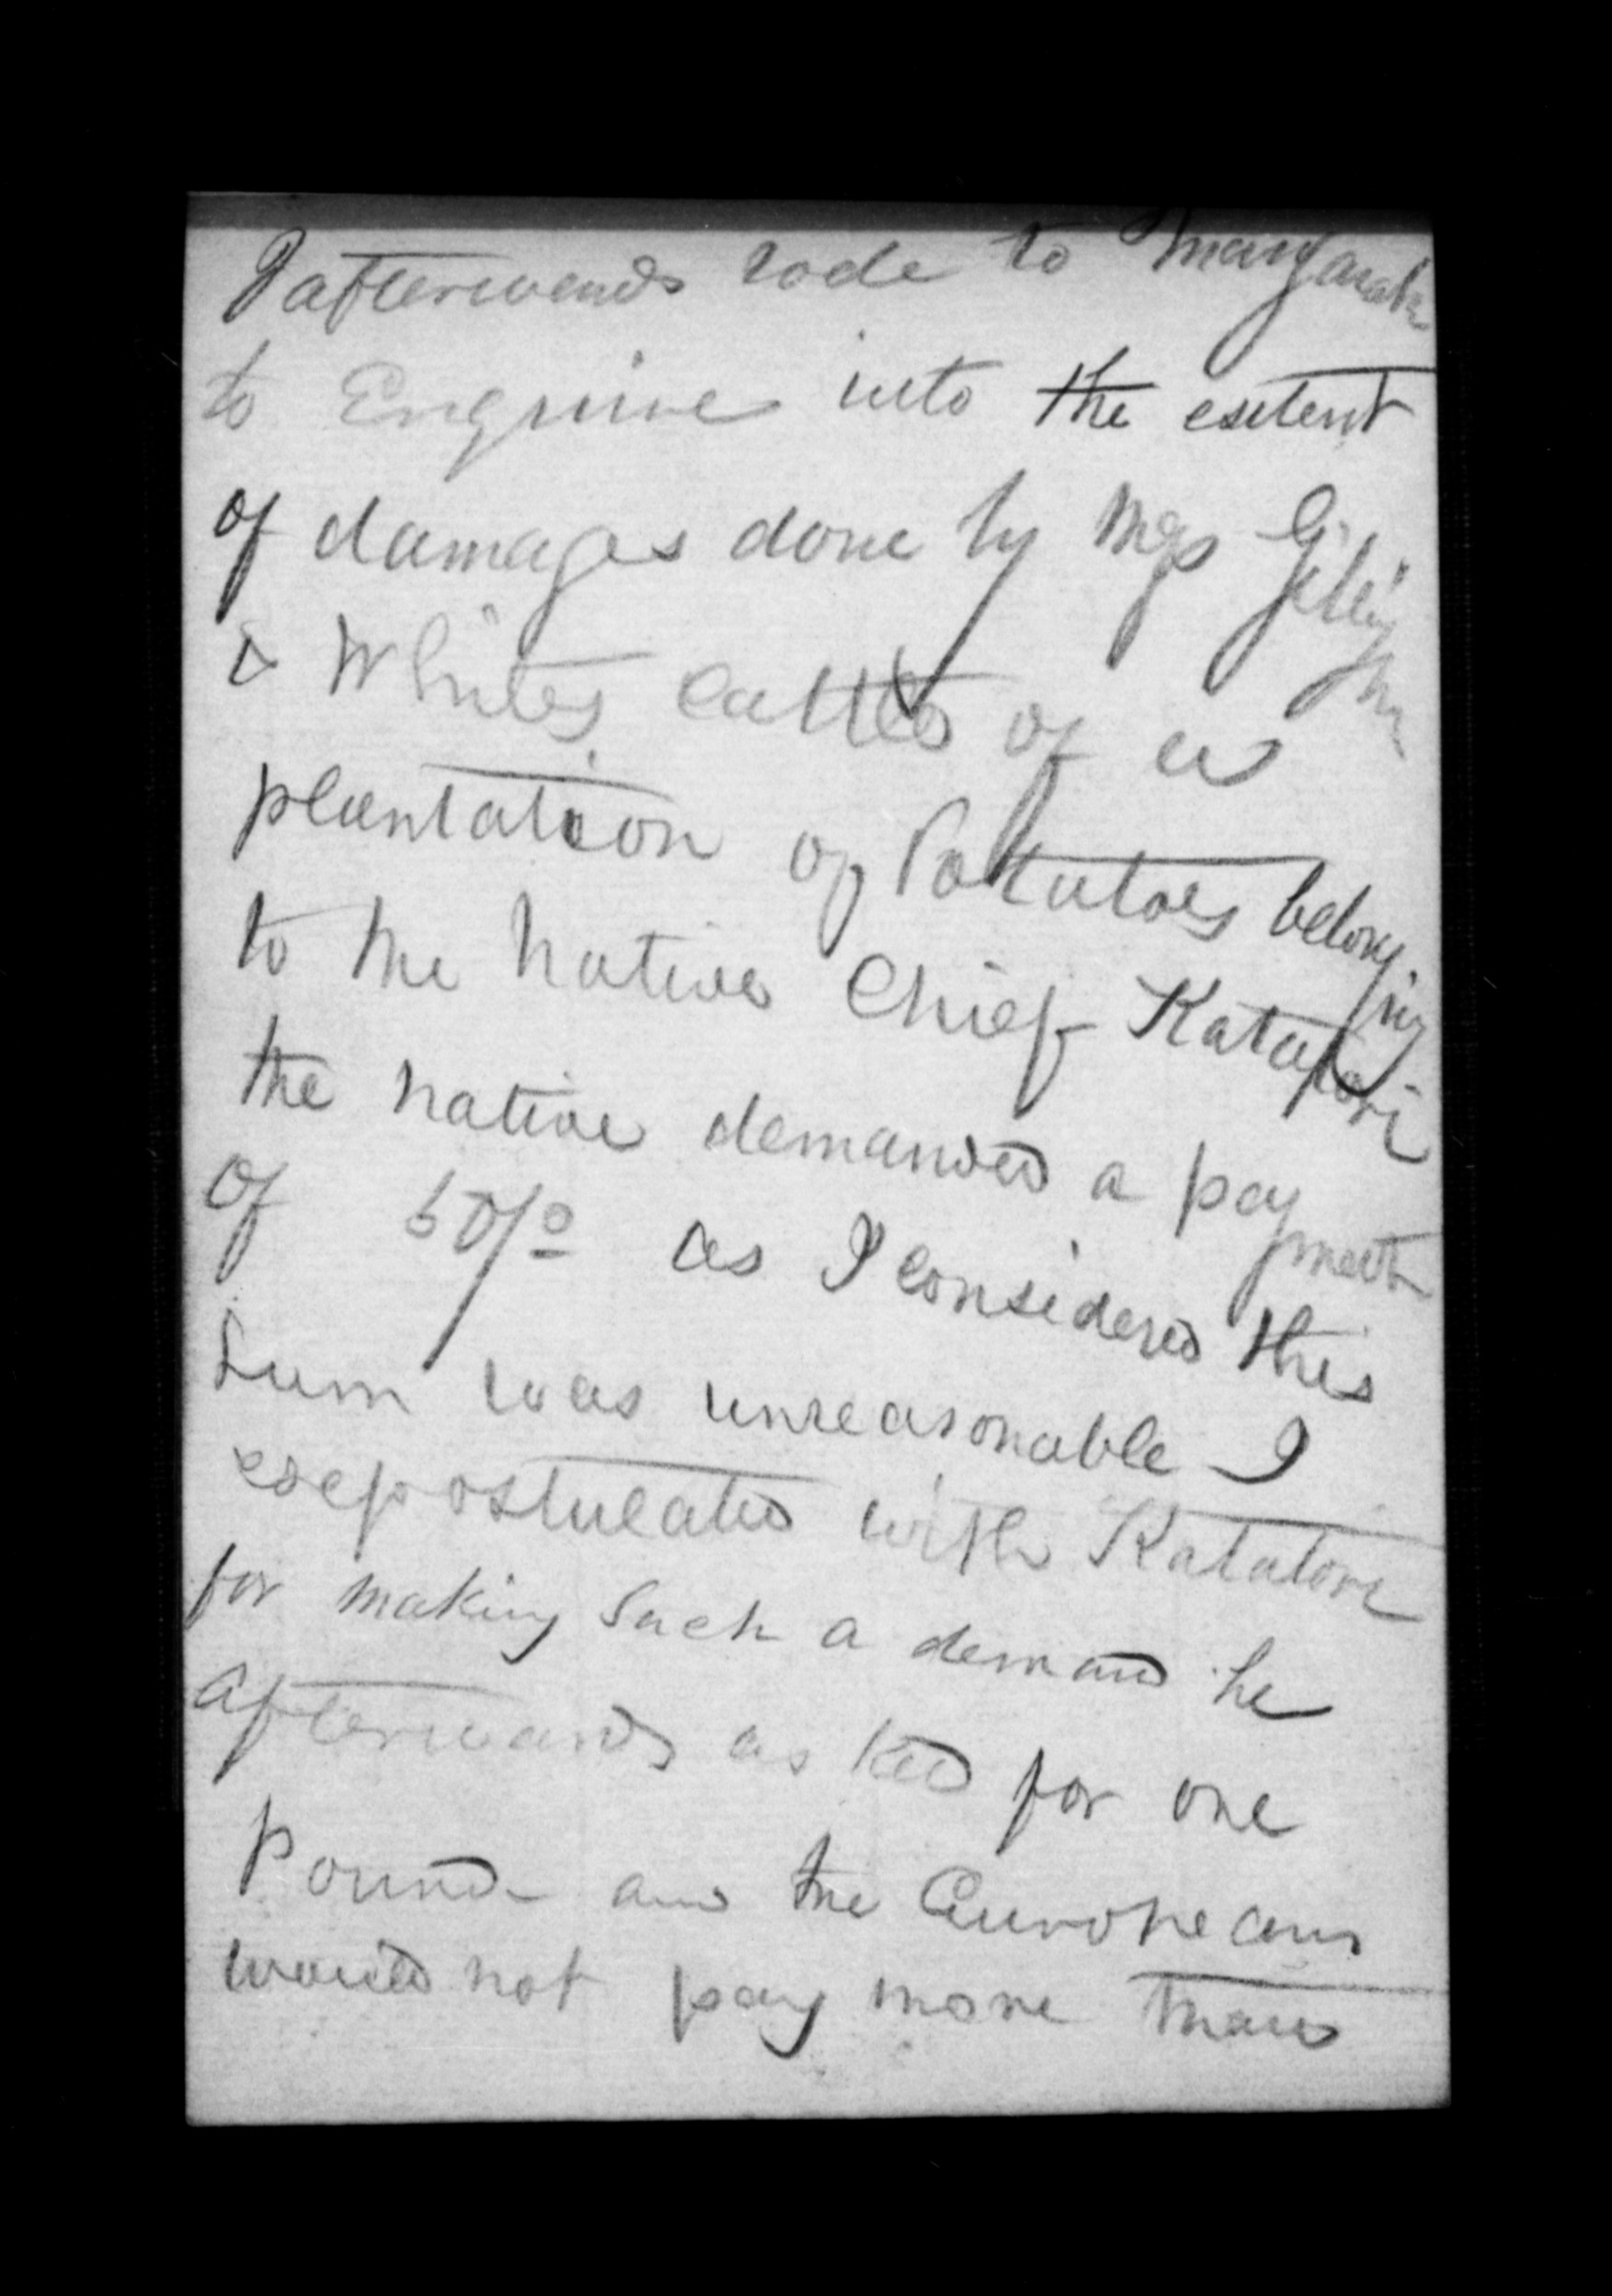 I afterwards rode to Mangarak
to Enquire into the extent
of damages done by Mrs
& Whites cattle of a
plantation of Potatoes belonging
to the Native Chief Katatori
the native demanded a payment
of 50/0 as I considered this
Sum was unreasonable I
expostulated with Katatore
for making Such a demand he
afterwards asked for one
Pound and the Europeans
would not pay more than